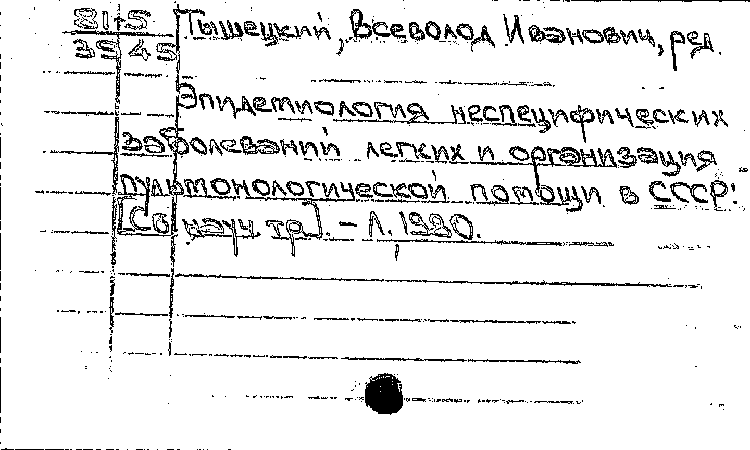 81-5 Тышецкий, Всеволод Иванович, ред.
3545
Эпидемиология неспецифических
заболеваний легких и организация
пульмонологической помощи в СССР:
[Сб науч. тр]. – Л, 1980.